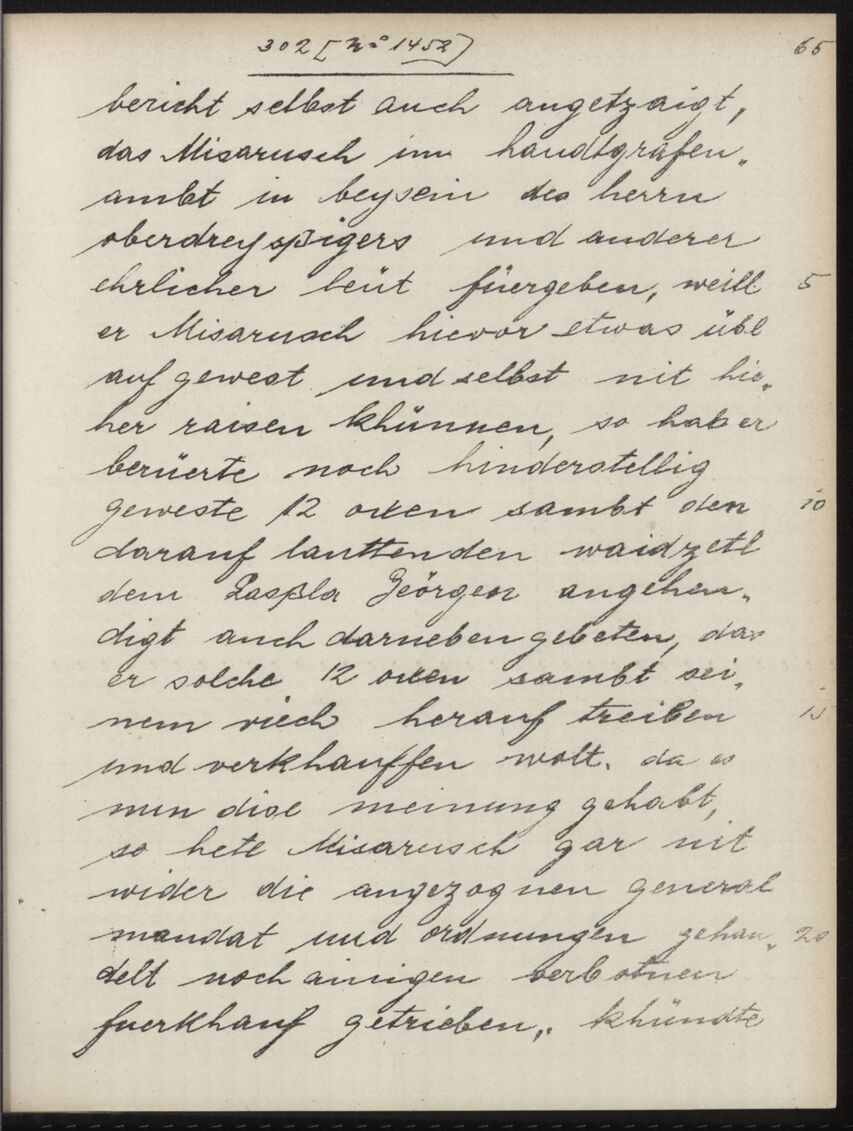 302 [No 1452]
65
bericht selbst auch angetzaigt,
das Misarusch im handtgrafen„
ambt in beysein des herrn
oberdreyspigers und anderer
ehrlicher leüt füergeben, weill 5
er Misarusch hievor etwas übl
auf gewest und selbst nit hie„
her raisen khünnen, so hab er
berüerte noch hinderstellig
geweste 12 oxen sambt den 10
darauf lauttenden waidzetl
dem Laßla Jeörgen angehen„
digt auch darneben gebeten, das
er solche 12 oxen sambt sei„
nem viech herauf treiben 15
und verkhauffen wolt. da es
nun dise meinung gehabt,
so hete Misarusch gar nit
wider die angezognen general
mandat und ordnungen gehan„ 20
delt noch ainigen verbotnen
fuerkhauf getrieben„ khündte